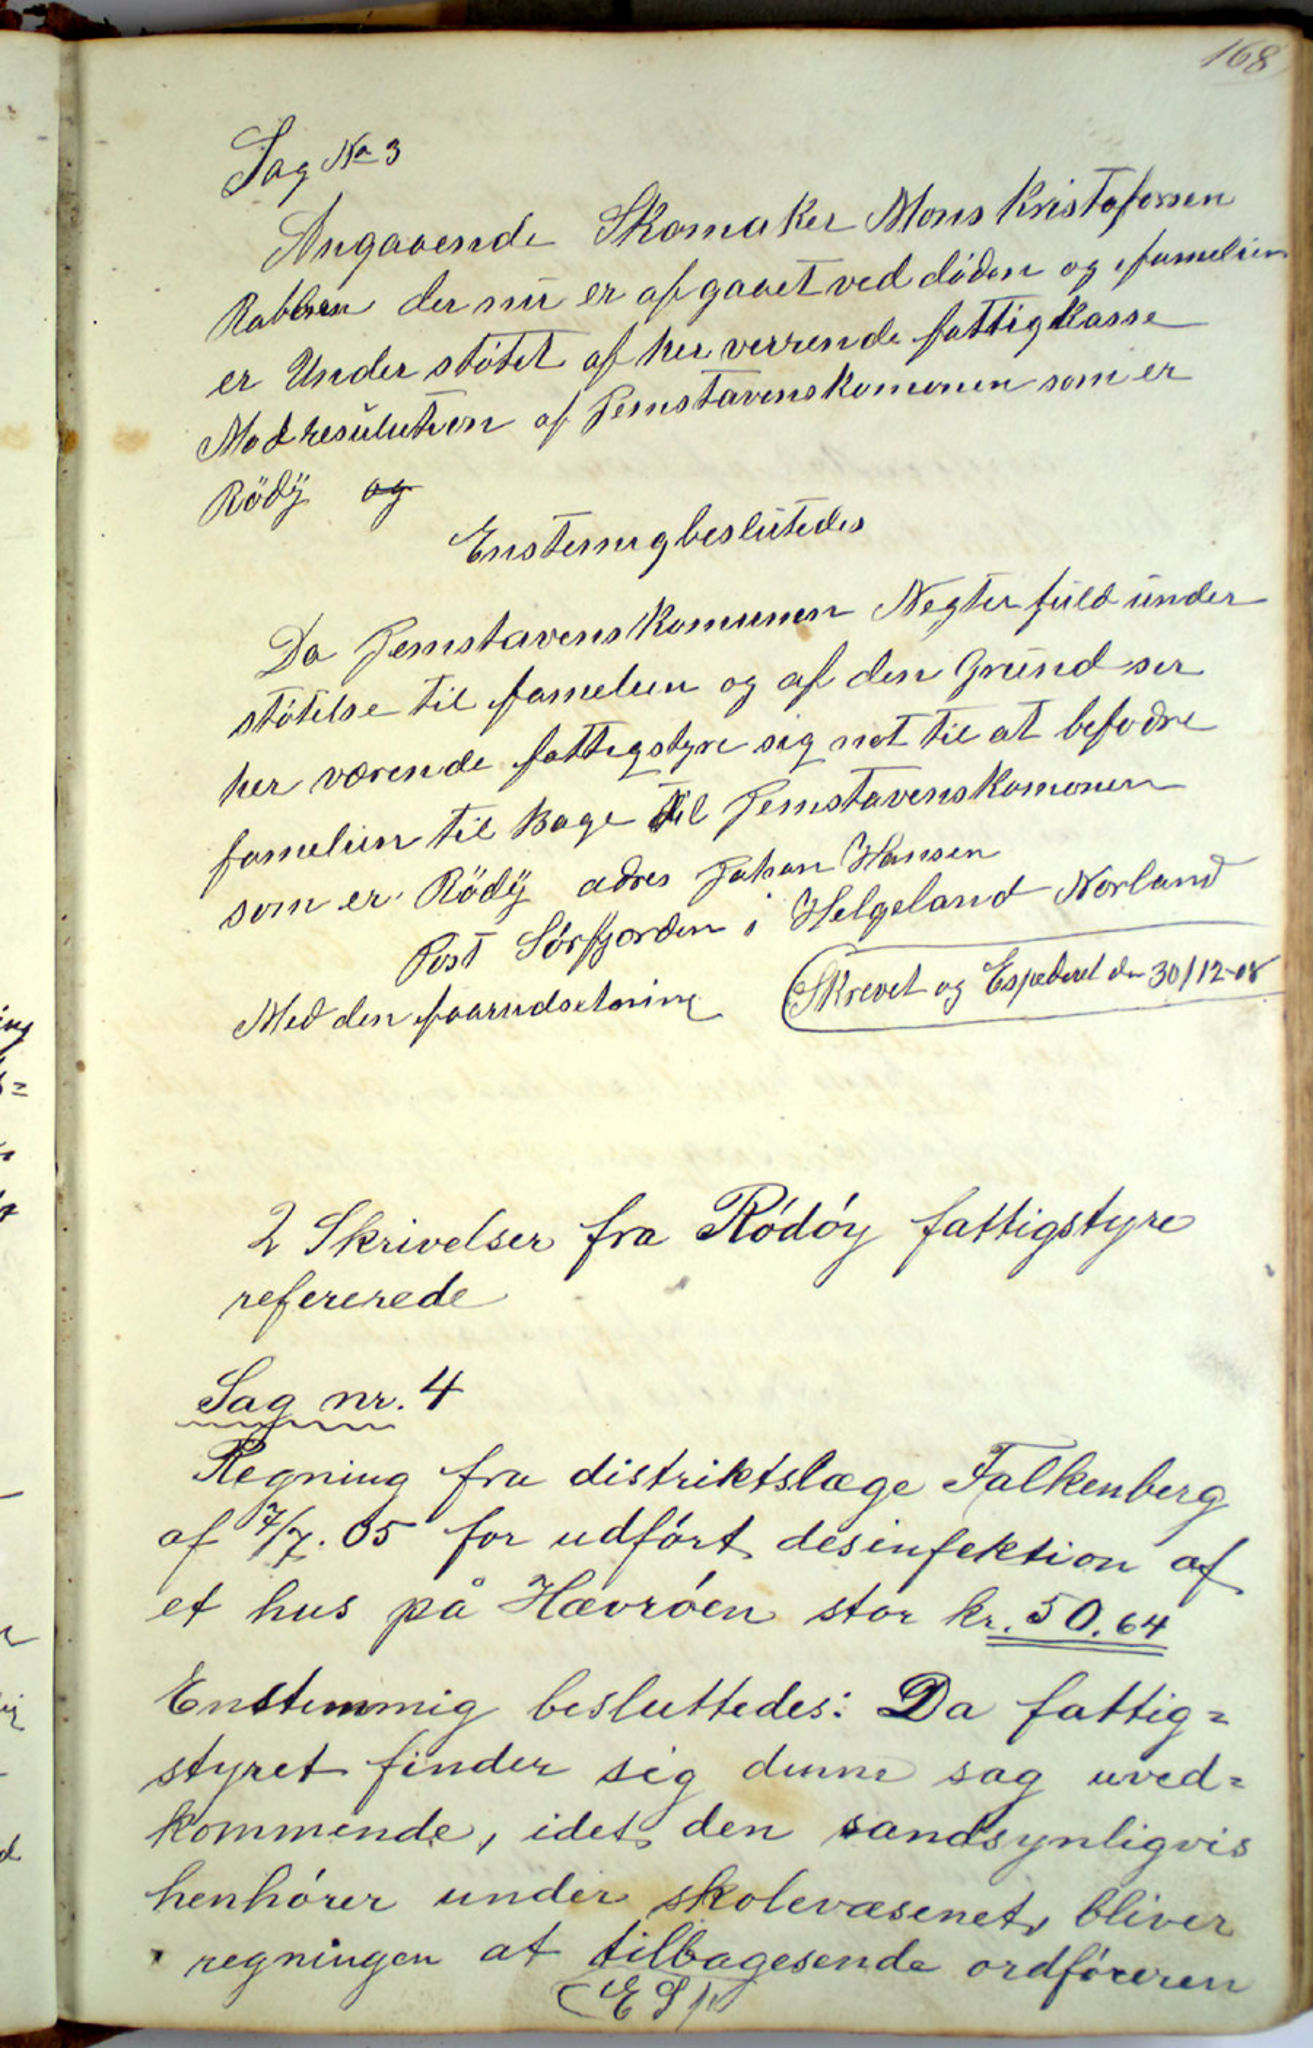 168
Sag No 3
Angaaende Skomaker Mons Kristofersen
Rabben der nu er afgaaet ved döden og famelien
er Under stötet af her verrende fattigkasse
Mod resulution af Jemstavenskomonen som er
Rödÿ og
Enstemig beslutedes
Da Jemstavenskomunen Negter fuld under
stötelse til famelien og af den grund ser
her værende fattigstyre sig nöt til at befodre
famelien til Bage til Jemstavenskomonen
som er Rödÿ adres Johan Hansen
Post Sörfjorden i Helgeland Norland
Med den foarudsetning
Skrevet og Expederet den 30/12-08
2 Skrivelser fra Ródóy fattigstyre
refererede
Sag nr. 4
Regning fra distriktslæge Falkenberg
af 7/7. 05 for udfórt desinfektion af
et hus på Hævróen stor kr. 50.64
Enstemmig besluttedes: Da fattig=
styret finder sig denne sag uved=
kommende, idet den sandsynligvis
henhórer under skolevæsenet, bliver
regningen at tilbagesende ordfóreren